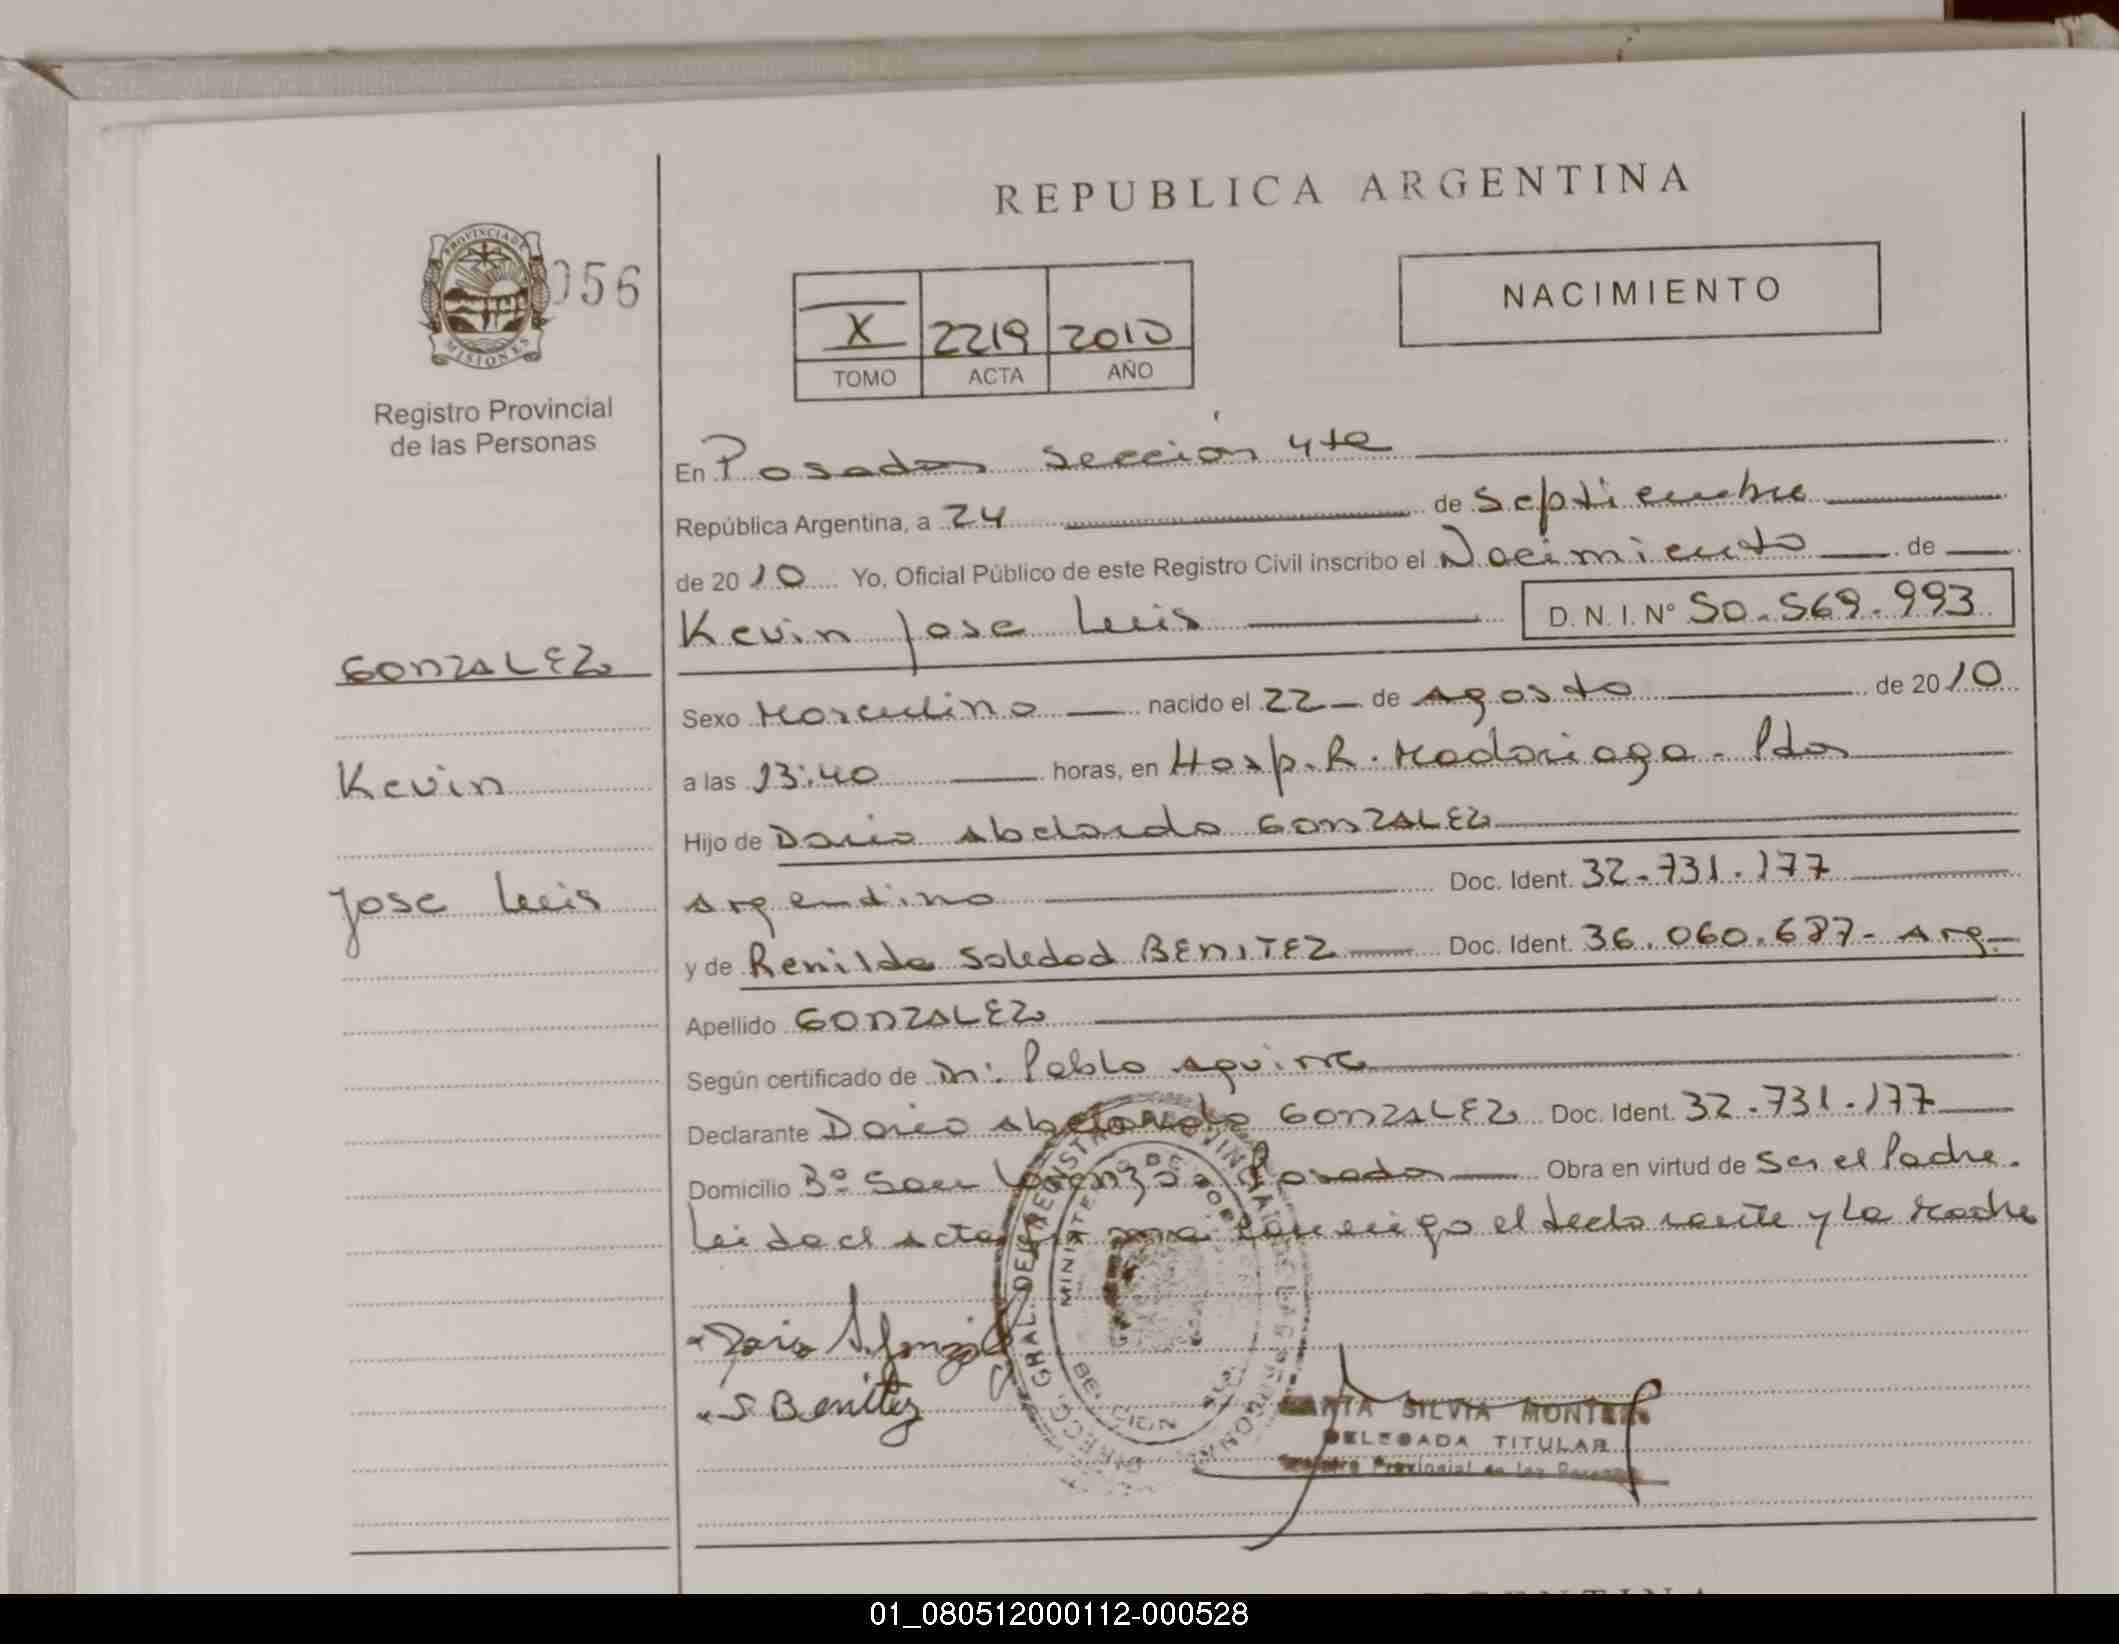 REPUBLICA ARGENTINA
PROVINCIA DE MISIONES
056
Registro Provincial
de las Personas
NACIMIENTO
X 2219 2010
TOMO ACTA AÑO
En Posadas Sección 4ta
República Argentina, a 24 de Septiembre
de 2010 Yo, Oficial Público de este Registro Civil inscribo el Nacimiento de
Kevin Jose Luis D. N. I. Nº 50.569.993
GONZALEZ
Kevin
Jose Luis
Sexo Masculino nacido el 22 de Agosto de 2010
a las 13:40 horas, en Hosp. R. Madariaga - Pdas
Hijo de Dario Abelardo GONZALEZ
Argentino Doc. Ident. 32.731.177
y de Renilda Soledad BENITEZ Doc. Ident. 36.060.687 - Arg.
Apellido GONZALEZ
Según certificado de Dr: Pablo Aguirre
Declarante Dario Abelardo GONZALEZ Doc. Ident. 32.731.177
Domicilio Bº San Lorenzo. Posadas Obra en virtud de Ser el Padre.
Leida el acta firma conmigo el declarante y la Madre
S Benitez
SILVIA
DELEGADA TITULAR
Registro Provincial de las Personas
01_080512000112-000528